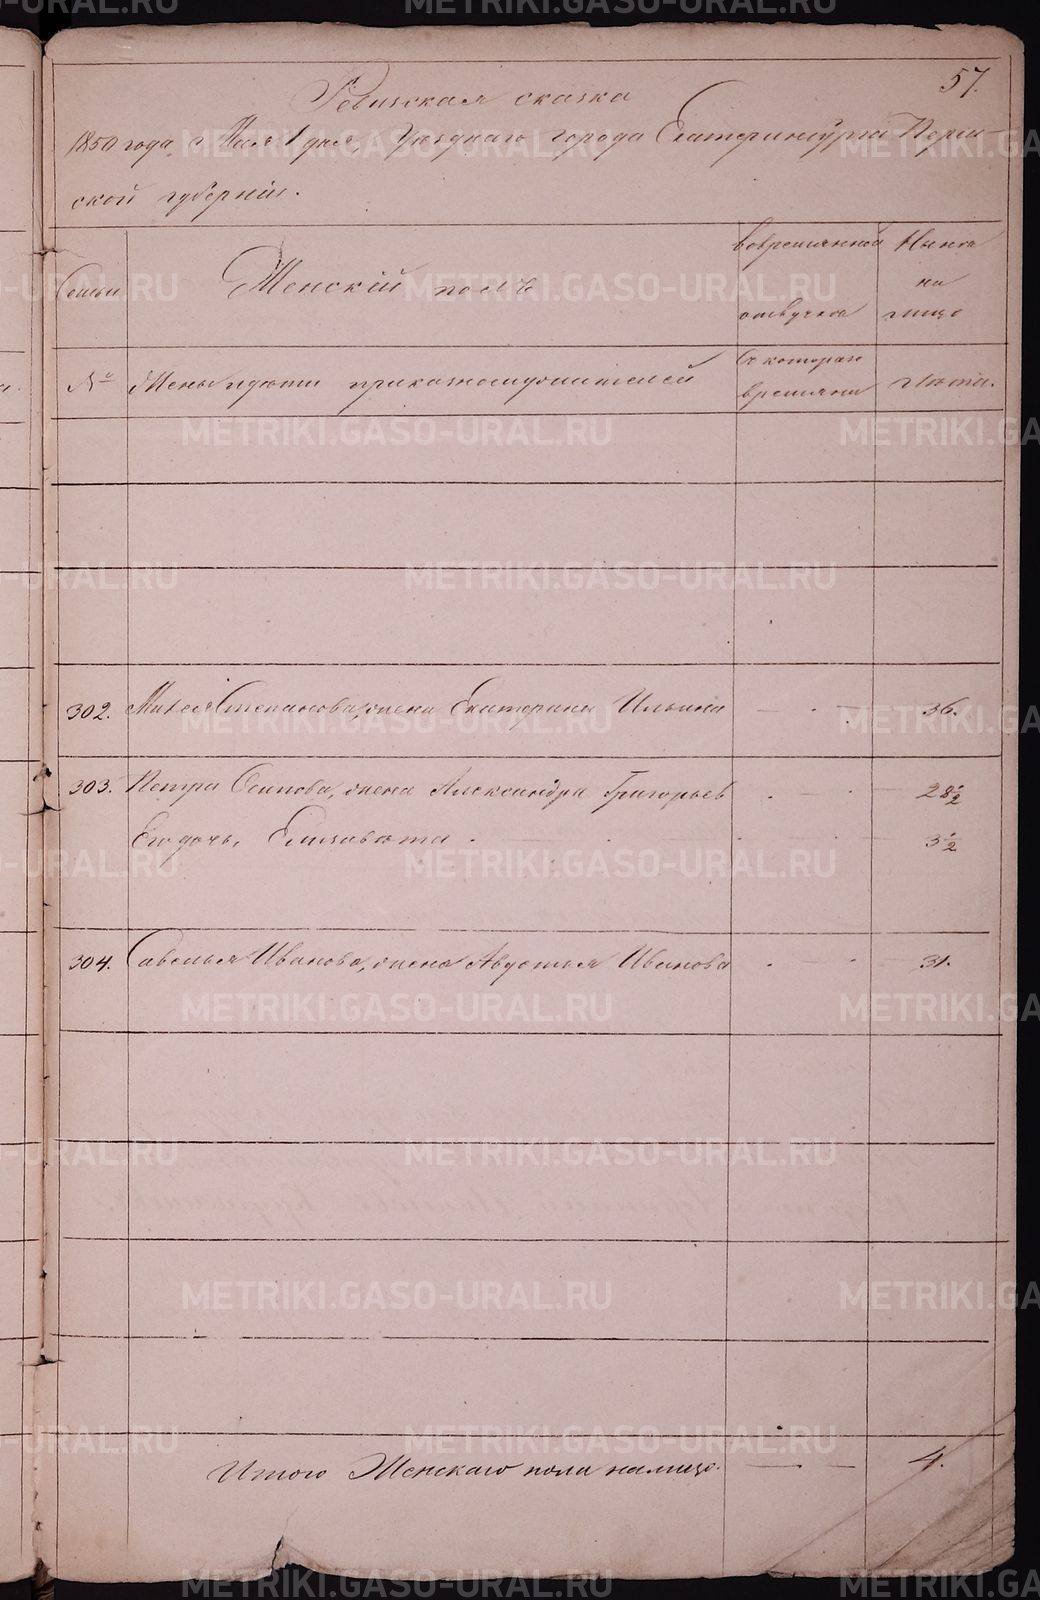 57.
Ревизская сказка
1850 года, Маія 1 дня, Уезднаго города Екатеринбурга Перм-
ской губерніи.
Семьи
Женскій полъ
Во временной
отлучке
Ныне
на
лицо
№
Жены и дети
Съ котораго
времяни
лета.
302. Степанова, жена Екатерина Ильина — 36.
303. Петра Осипова, жена Александра Григорьев — 28 1/2
Его дочь, Елизавета — 3 1/2
304. Савелья Иванова, жена Авдотья Иванова — 31.
Итого Женскаго пола налицо. — 4.
METRIKI.GASO-URAL.RU